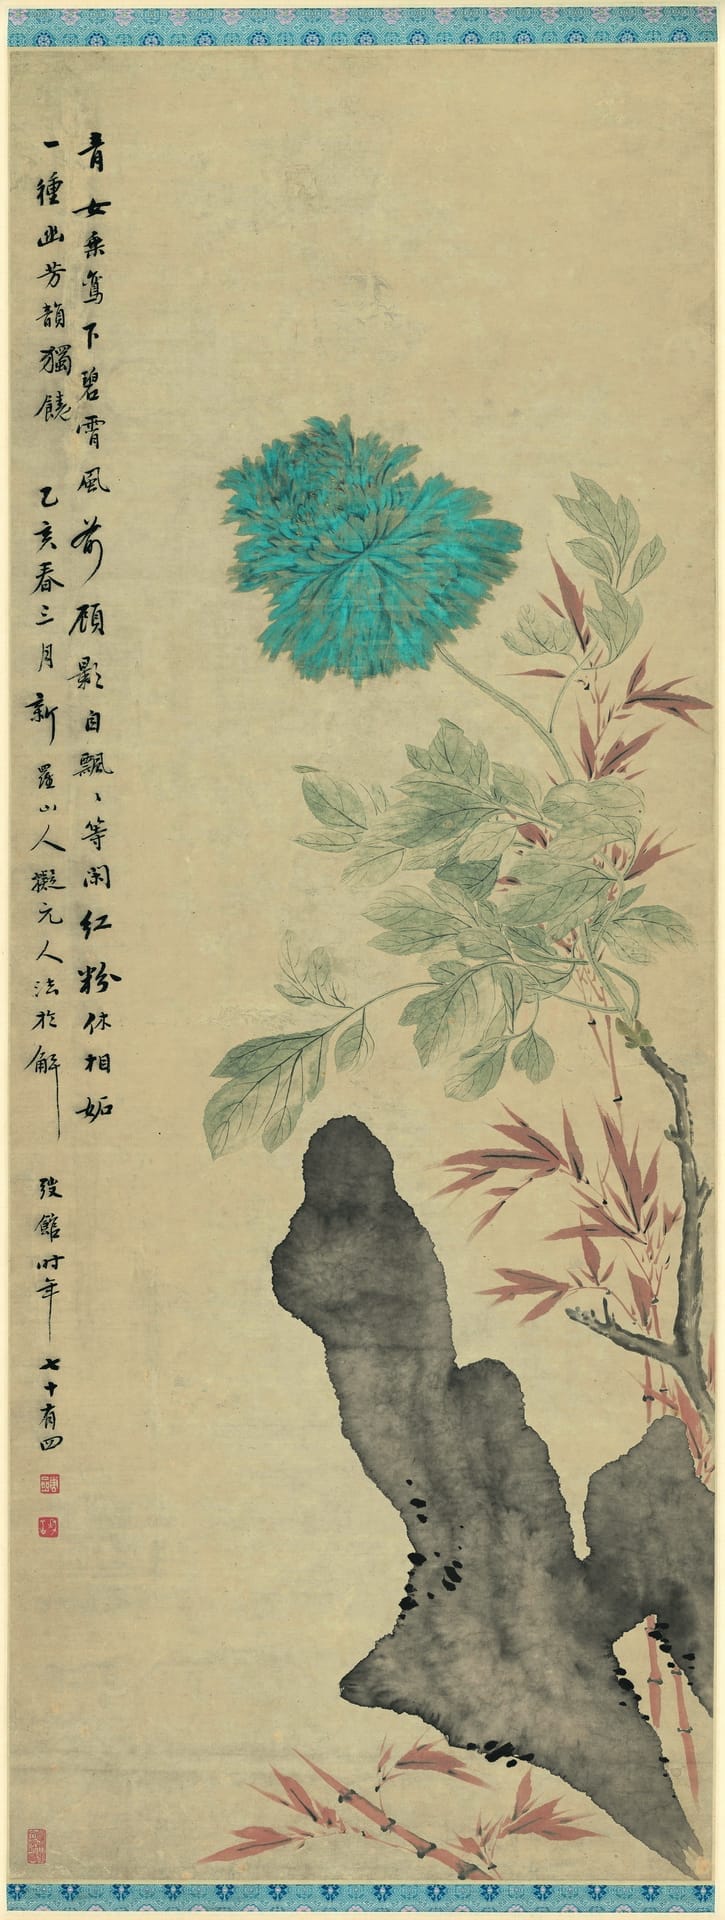 青女乘鸞下碧霄風前顧影自飄〻等閑紅粉休相妬
一種幽芳韻獨饒 乙亥春三月新羅山人擬元人法於解弢館時年七十有四